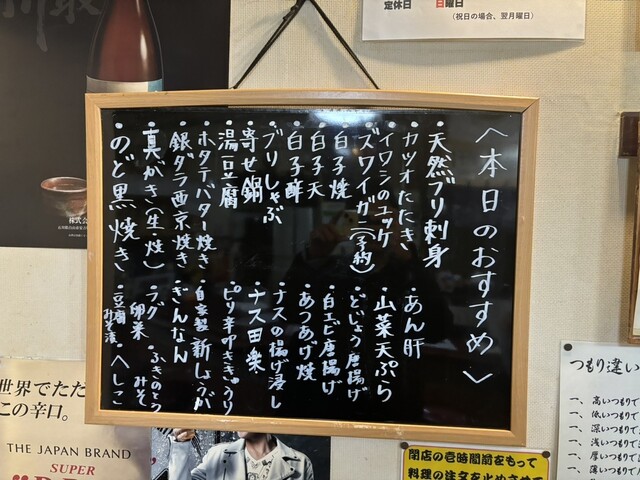 〈本日のおすすめ〉
・天然ブリ刺身
・カツオたたき
・イワシのユッケ
・ズワイガニ(予約)
・白子焼
・白子天
・白子酢
・ブリしゃぶ
・寄せ鍋
・湯豆腐
・ホタテバター焼き
・銀ダラ西京焼き
・真がき(生・焼)
・のど黒焼き
・あん肝
・山菜天ぷら
・どじょう唐揚げ
・白エビ唐揚げ
・あつあげ焼
・ナスの揚げ浸し
・ナス田楽
・ピリ辛叩ききゅうり
・自家製新しょうが
・ぎんなん
・ふきのとうみそ
・フグ卵巣
・へしこ
・豆腐みそ漬
定休日 日曜日
(祝日の場合、翌月曜日)
株式会
世界でただ
この辛口。
THE JAPAN BRAND
SUPER
閉店の壱時間前をもって
料理の注文を止めさせて
つもり違い
一、高いつもりで
一、低いつもりで
一、深いつもりで
一、浅いつもりで
一、厚いつもりで
一、薄いつもりで